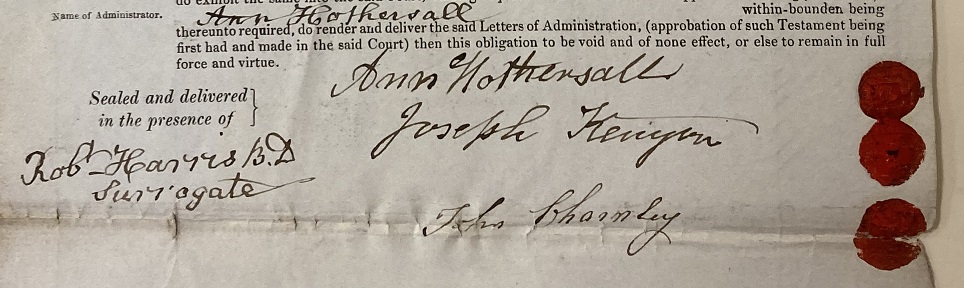 Name of Administrator. Ann Hothersall within-bounden being
thereunto required, do render and deliver the said Letters of Administration, (approbation of such Testament being
first had and made in the said Court) then this obligation to be void and of none effect, or else to remain in full
force and virtue.
Ann Hothersall
Sealed and delivered
in the presence of
Joseph Kenyon
Robt Harris B.D
Surrogate
John Charnley